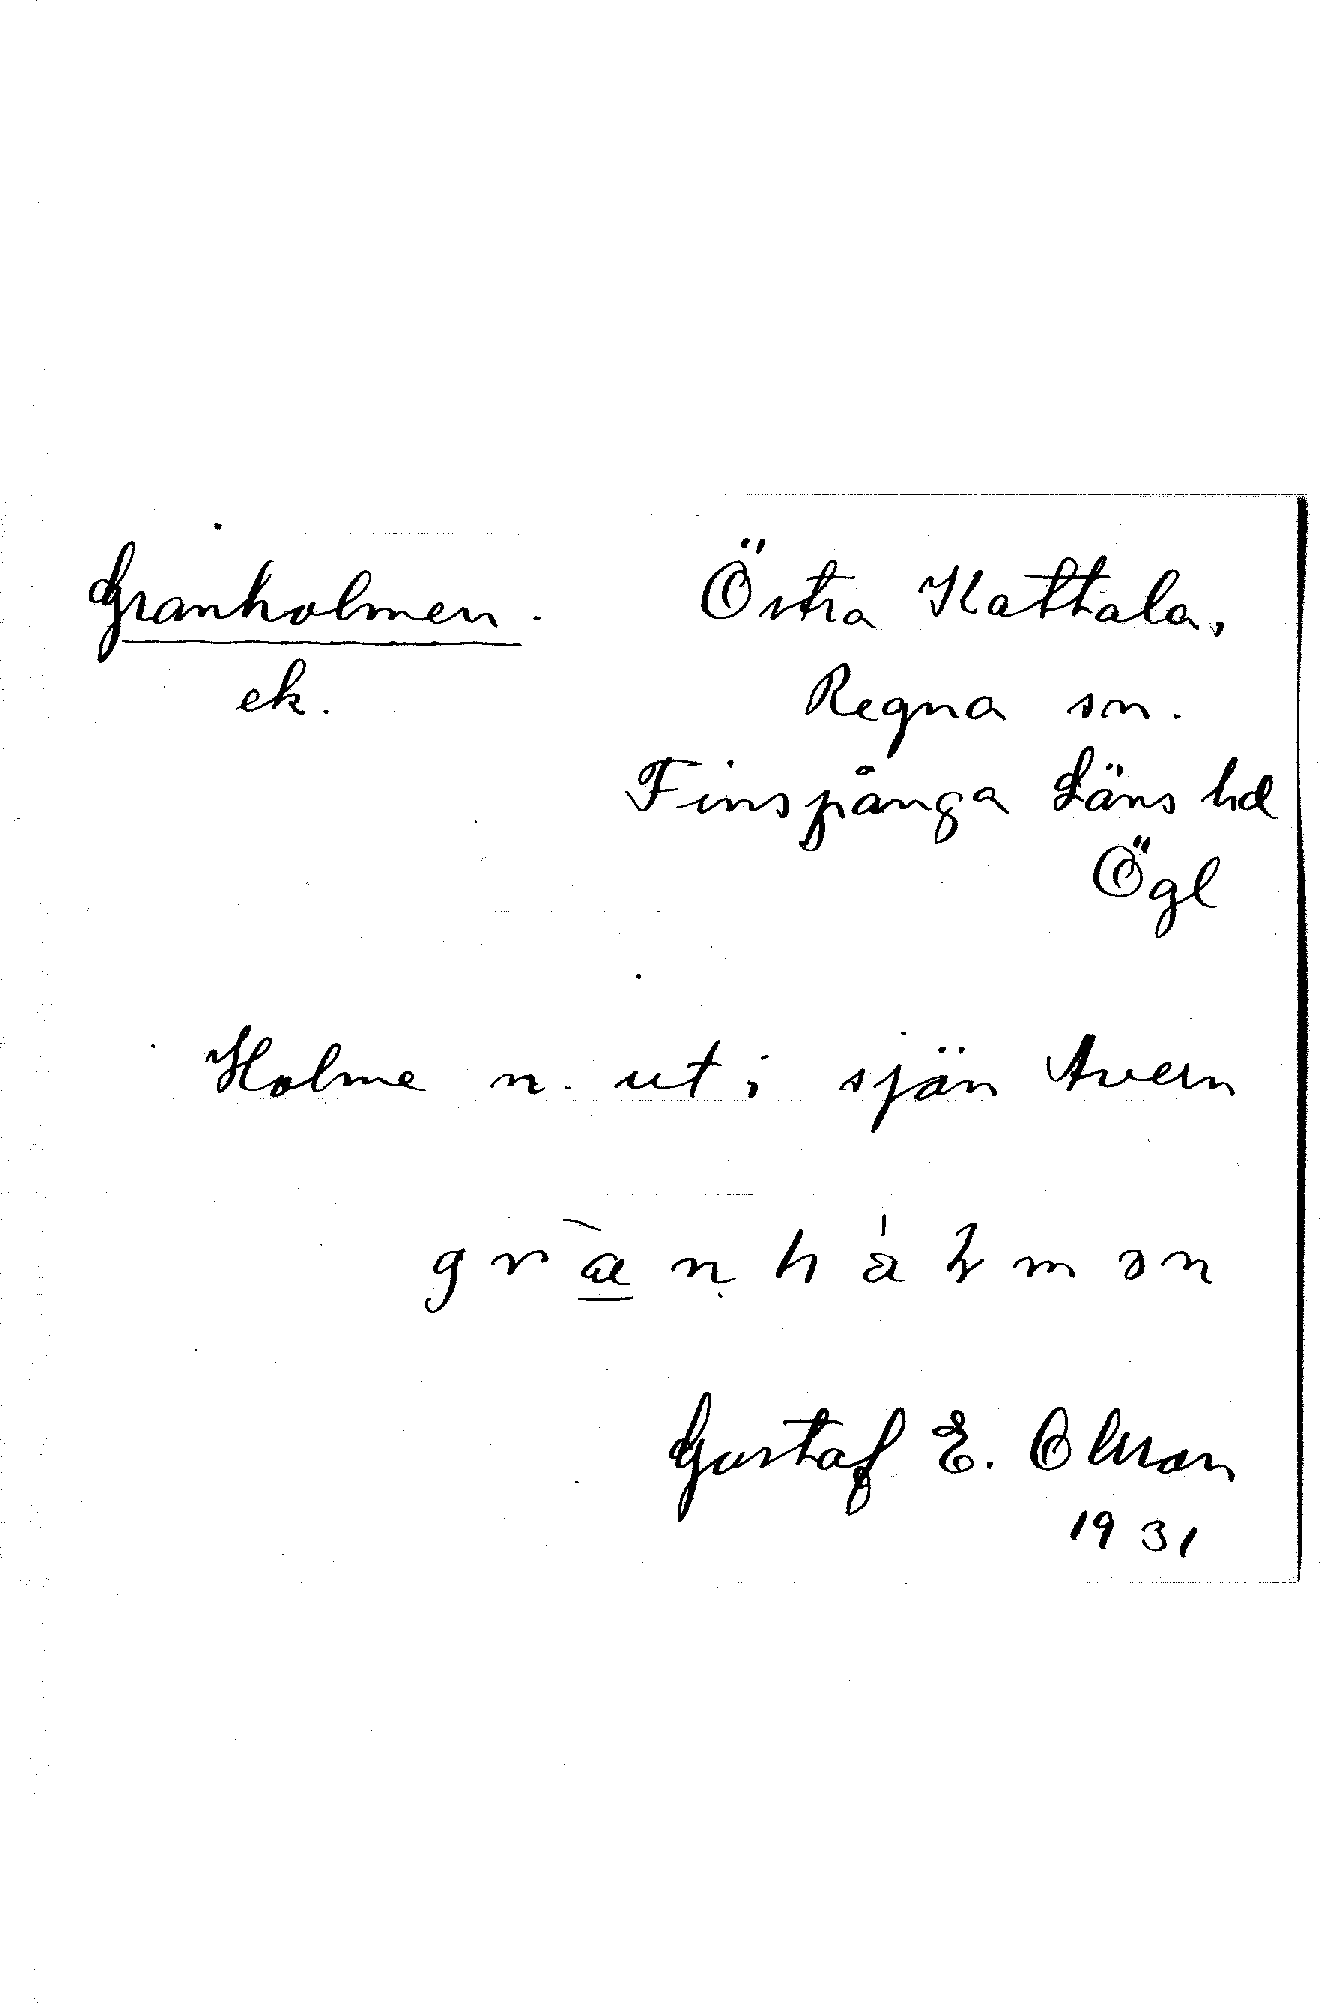 Granholmen. Östra Kattala,
ek. Regna sn.
Finspånga Läns hd
Ögl
Holme n. ut i sjön Avern
grànhålmən
Gustaf E. Olsson
1931